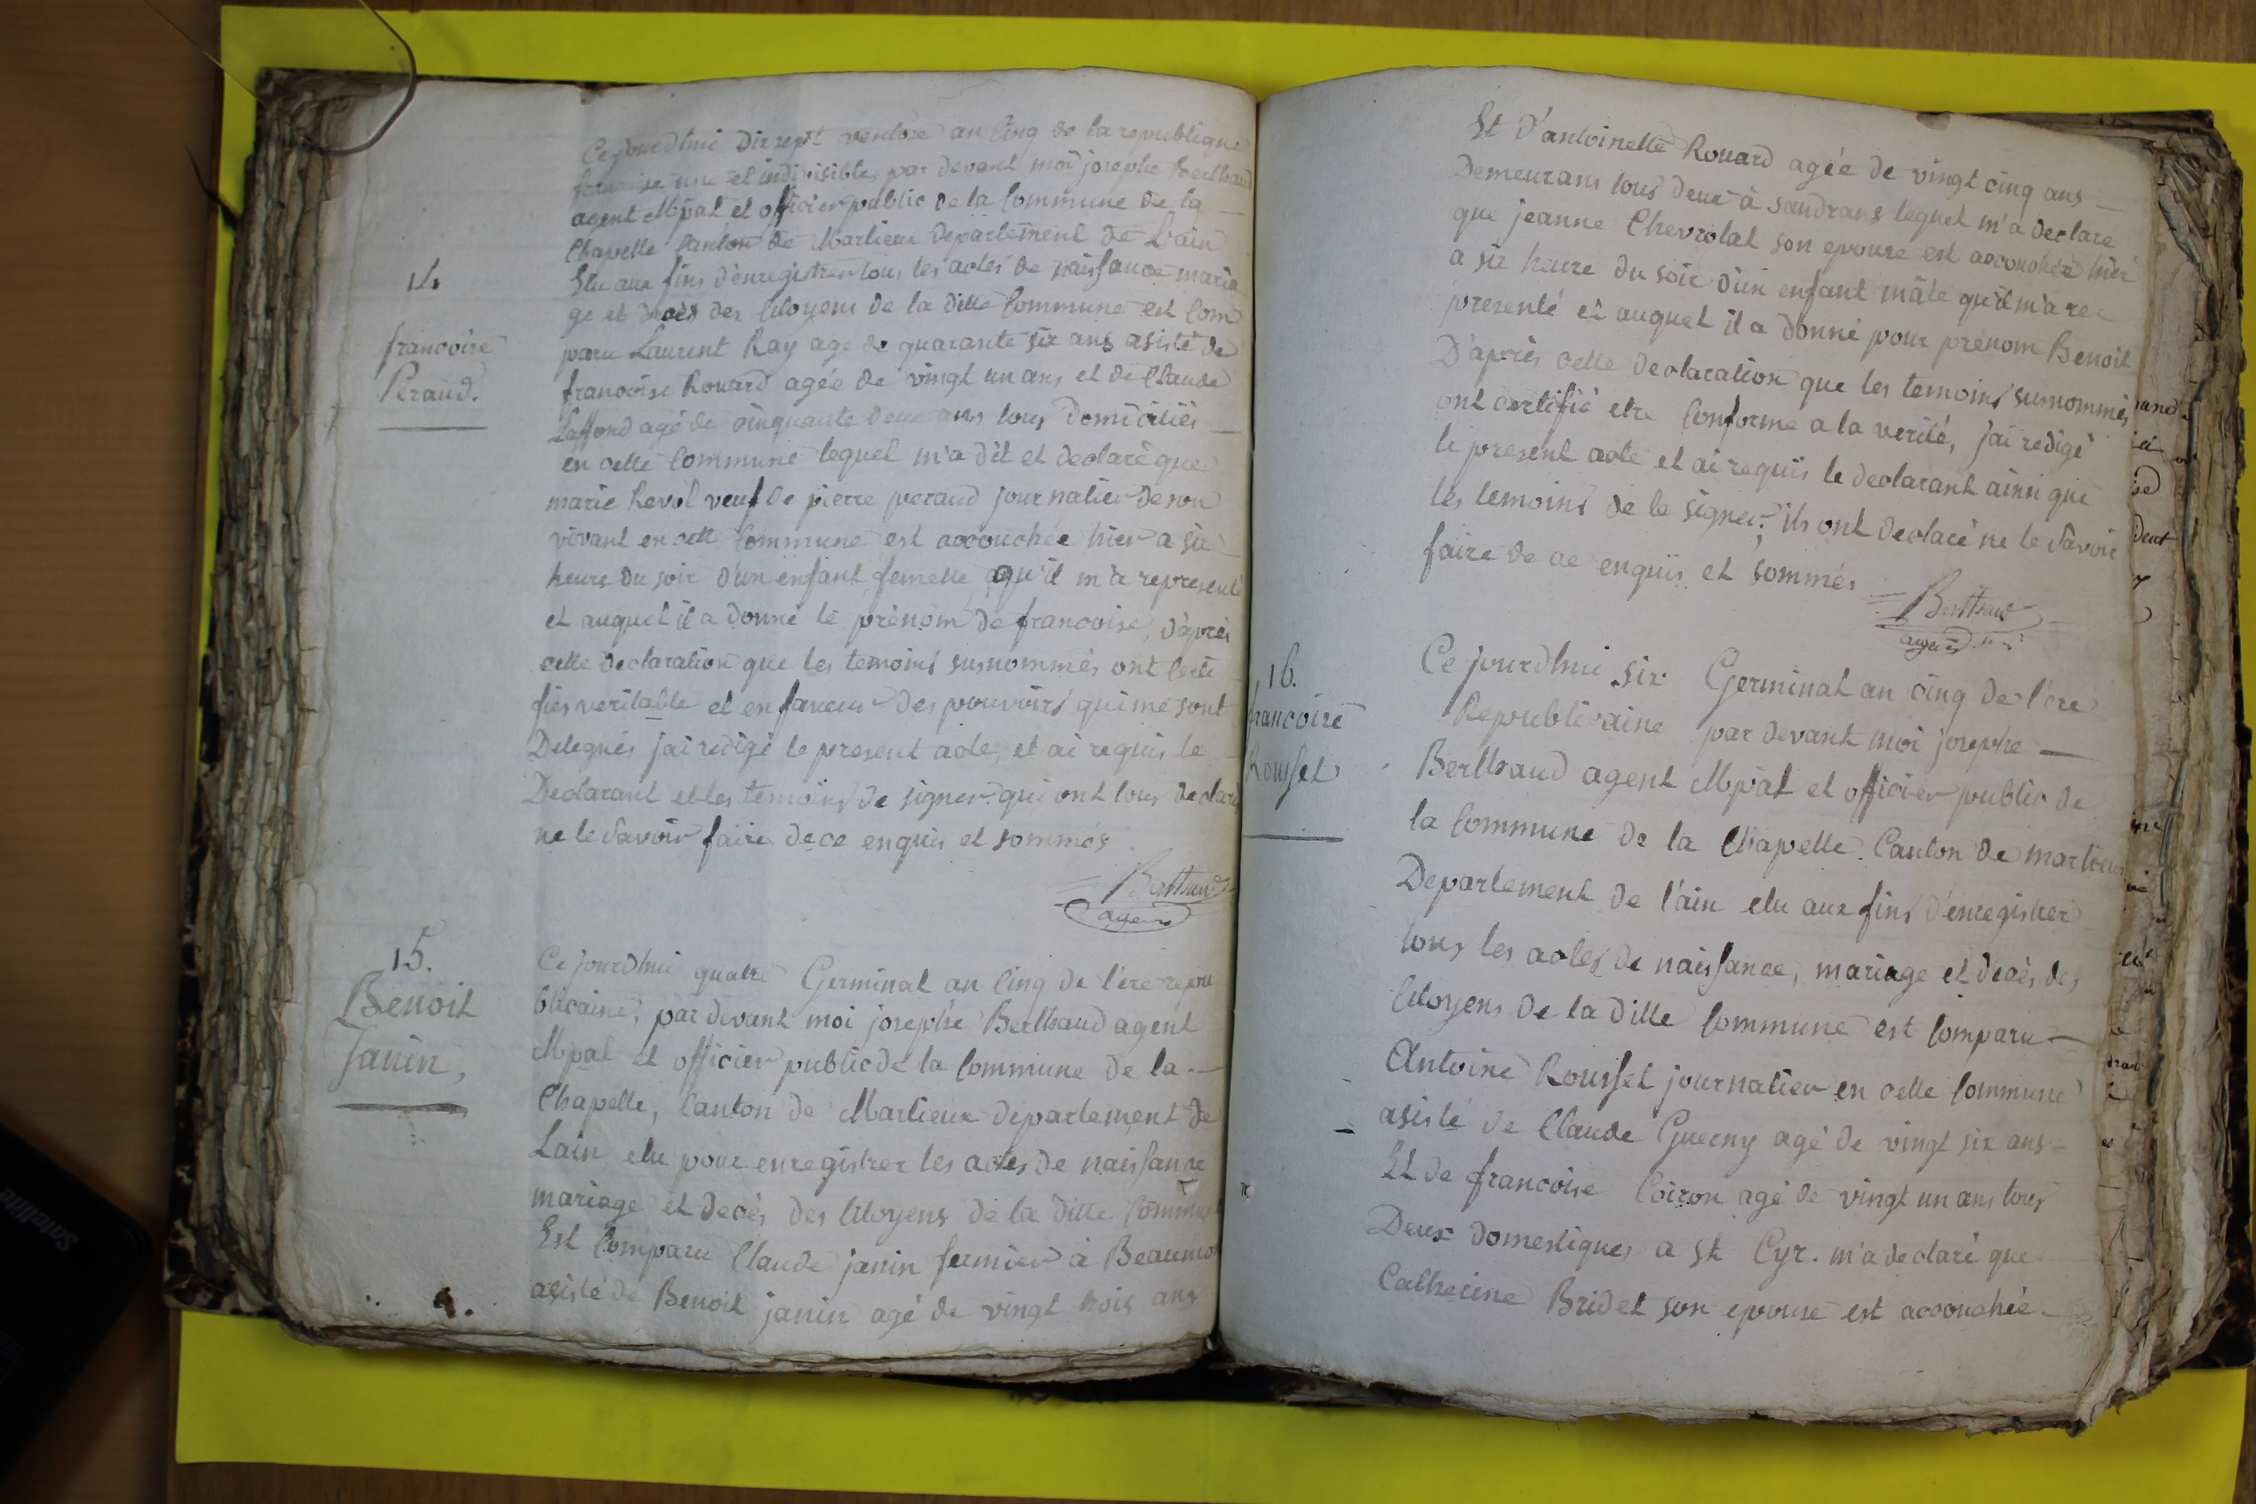 14
francoise
Peraud.
Cejourdhui dix sept ventose an Cinq de la republique
francaise une et indivisible, par devant moi josephe Berthaud
agent Mpal et officier public de la Commune de la
Chapelle Canton de Marlieux departement de L'ain
Elu aux fins d'enregistrer tous les actes de naissance maria
ge et decès des Citoyens de la ditte Commune est Com
paru Laurent Ray agé de quarante six ans asisté de
francoise Rouard agée de vingt un ans et de Claude
Laffond agé de cinquante deux ans tous domiciliés
en cette Commune lequel m'a dit et declaré que
marie Revol veuf de pierre peraud journalier de son
vivant en cette Commune est accouchée hier a six
heure du soir d'un enfant femelle, qu'il m'a representé
et auquel il a donné le prénom de francoise, d'après
cette declaration que les temoins susnommés ont certi
fiés veritable et en faveur des pouvoirs qui me sont
Delegués j'ai redigé le present acte, et ai requis le
Declarant et les temoins de signer qui ont tous declaré
ne le Savoir faire de ce enquis et sommés
Berthaud
agent
15.
Benoit
Janin,
Ce jourdhui quatre Germinal an Cinq de l'ere repu
blicaine; par devant moi josephe Berthaud agent
Mpal et officier public de la Commune de la
Chapelle, Canton de Marlieux departement de
Lain elu pour enregistrer les actes de naissance
mariage et decès des Citoyens de la ditte Commune
Est Comparu Claude janin fermier à Beaumont
asisté de Benoit janin agé de vingt trois ans
Et d'antoinette Rouard agée de vingt cinq ans
Demeurans tous deux à Sandrans lequel m'a declaré
que jeanne Chevrolat son epouse est accouchée hier
a six heure du soir d'un enfant mâle qu'il m'a re
presenté et auquel il a donné pour prénom Benoit
D'après cette declaration que les temoins susnommés
ont certifié etre Conforme a la verité, j'ai redigé
le present acte et ai requis le declarant ainsi que
les temoins de le signer; ils ont declaré ne le Savoir
faire de ce enquis et sommés
Berthaud
agent
16.
francoise
Rousset
Ce jourdhui six Germinal an cinq de l'ere
Republicaine par devant moi josephe
Berthaud agent Mpal et officier public de
la Commune de la Chapelle Canton de marlieux
Departement de l'ain elu aux fins d'enregistrer
tous les actes de naissance, mariage et decès des
Citoyens de la ditte Commune est Comparu
Antoine Rousset journalier en cette Commune
asisté de Claude Guerny agé de vingt six ans
Et de francoise Coiron agé de vingt un ans tous
Deux domestiques a St Cyr. m'a declaré que
Catherine Bridet son epouse est accouchée